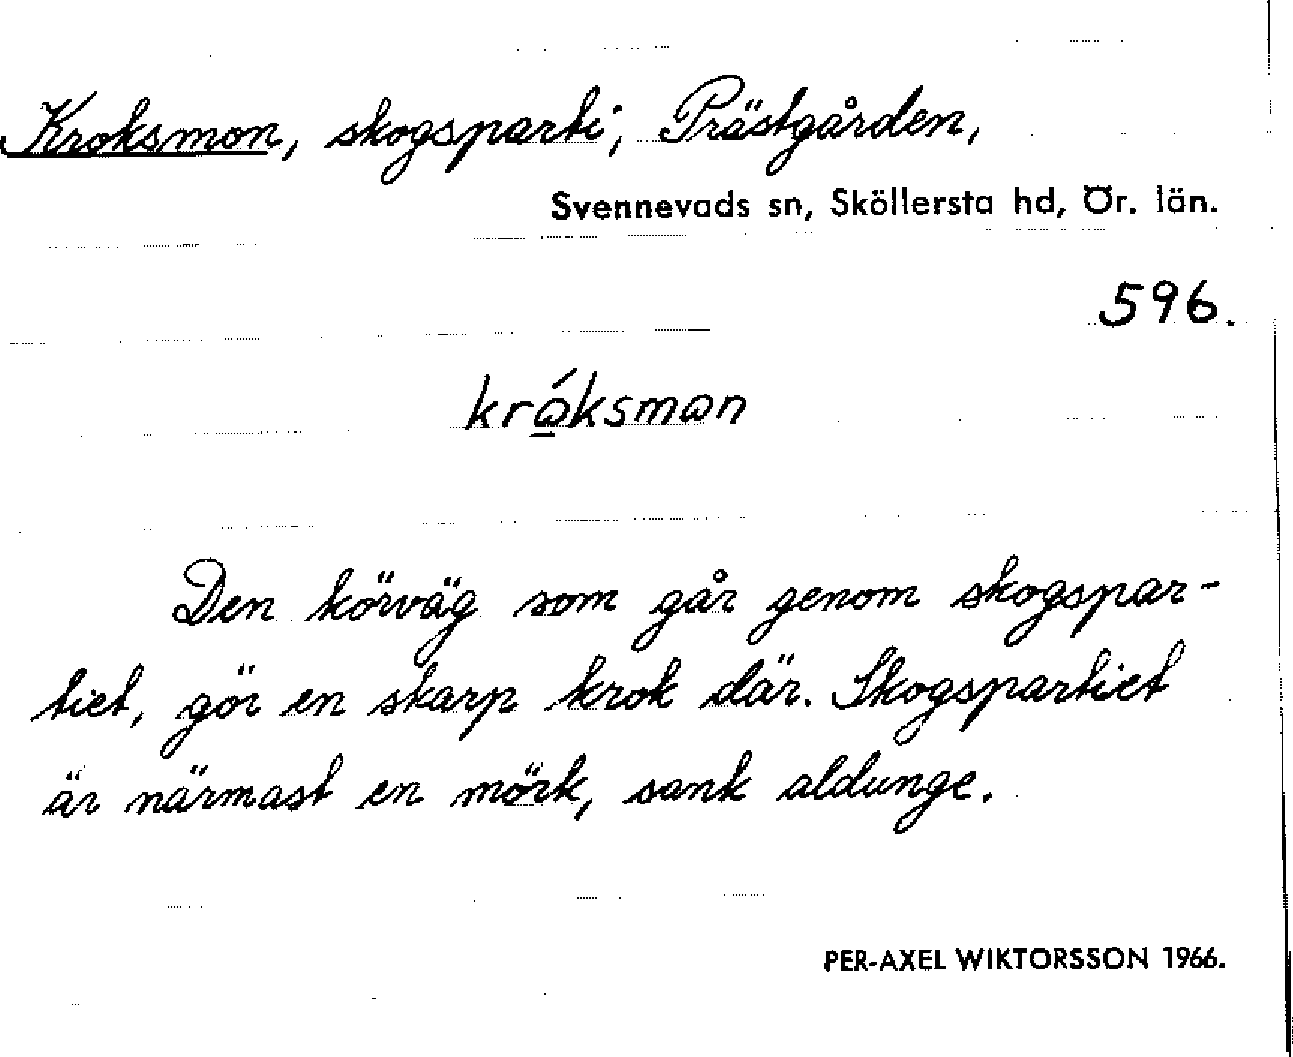 Kroksmon, skogsparti, Prästgården,
Svennevads sn, Sköllersta hd, Ör. län.
596.
krώ̲ksmωn
Den körväg som går genom skogspar-
tiet, gör en skarp krok där. Skogspartiet
är närmast en mörk, sank aldunge.
PER-AXEL WIKTORSSON 1966.